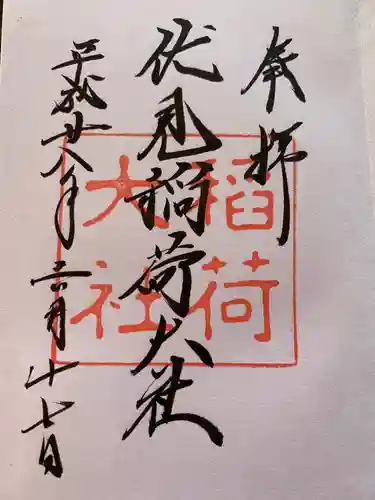 奉拝
伏見稲荷大社
平成廿八年三月十七日
稲荷
大社